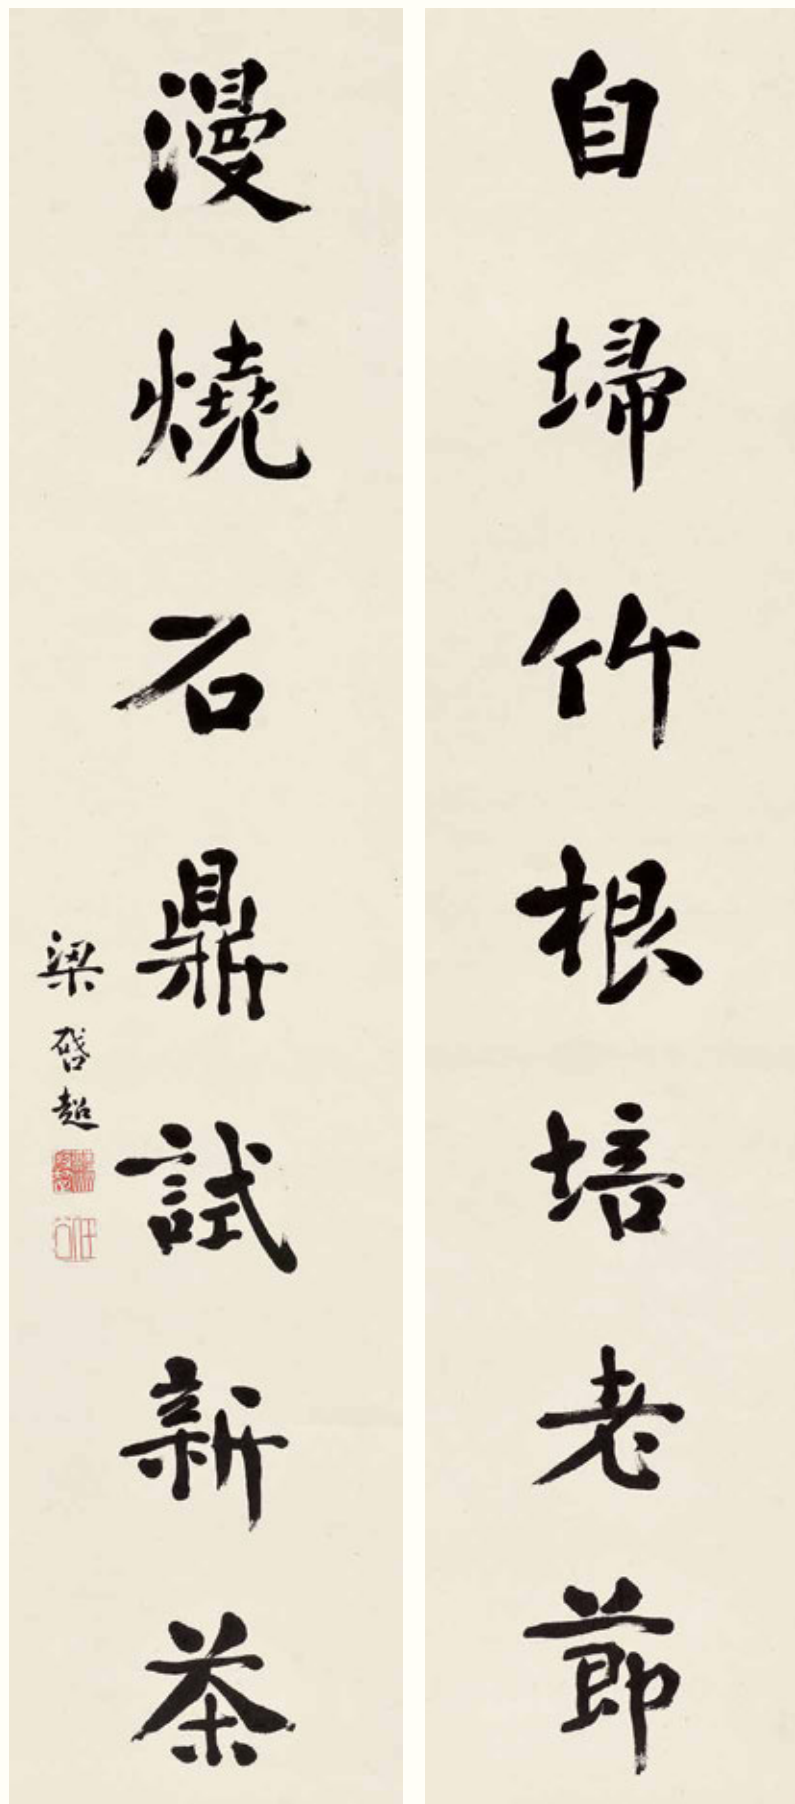 自埽竹根培老節
漫燒石鼎試新茶
梁啓超